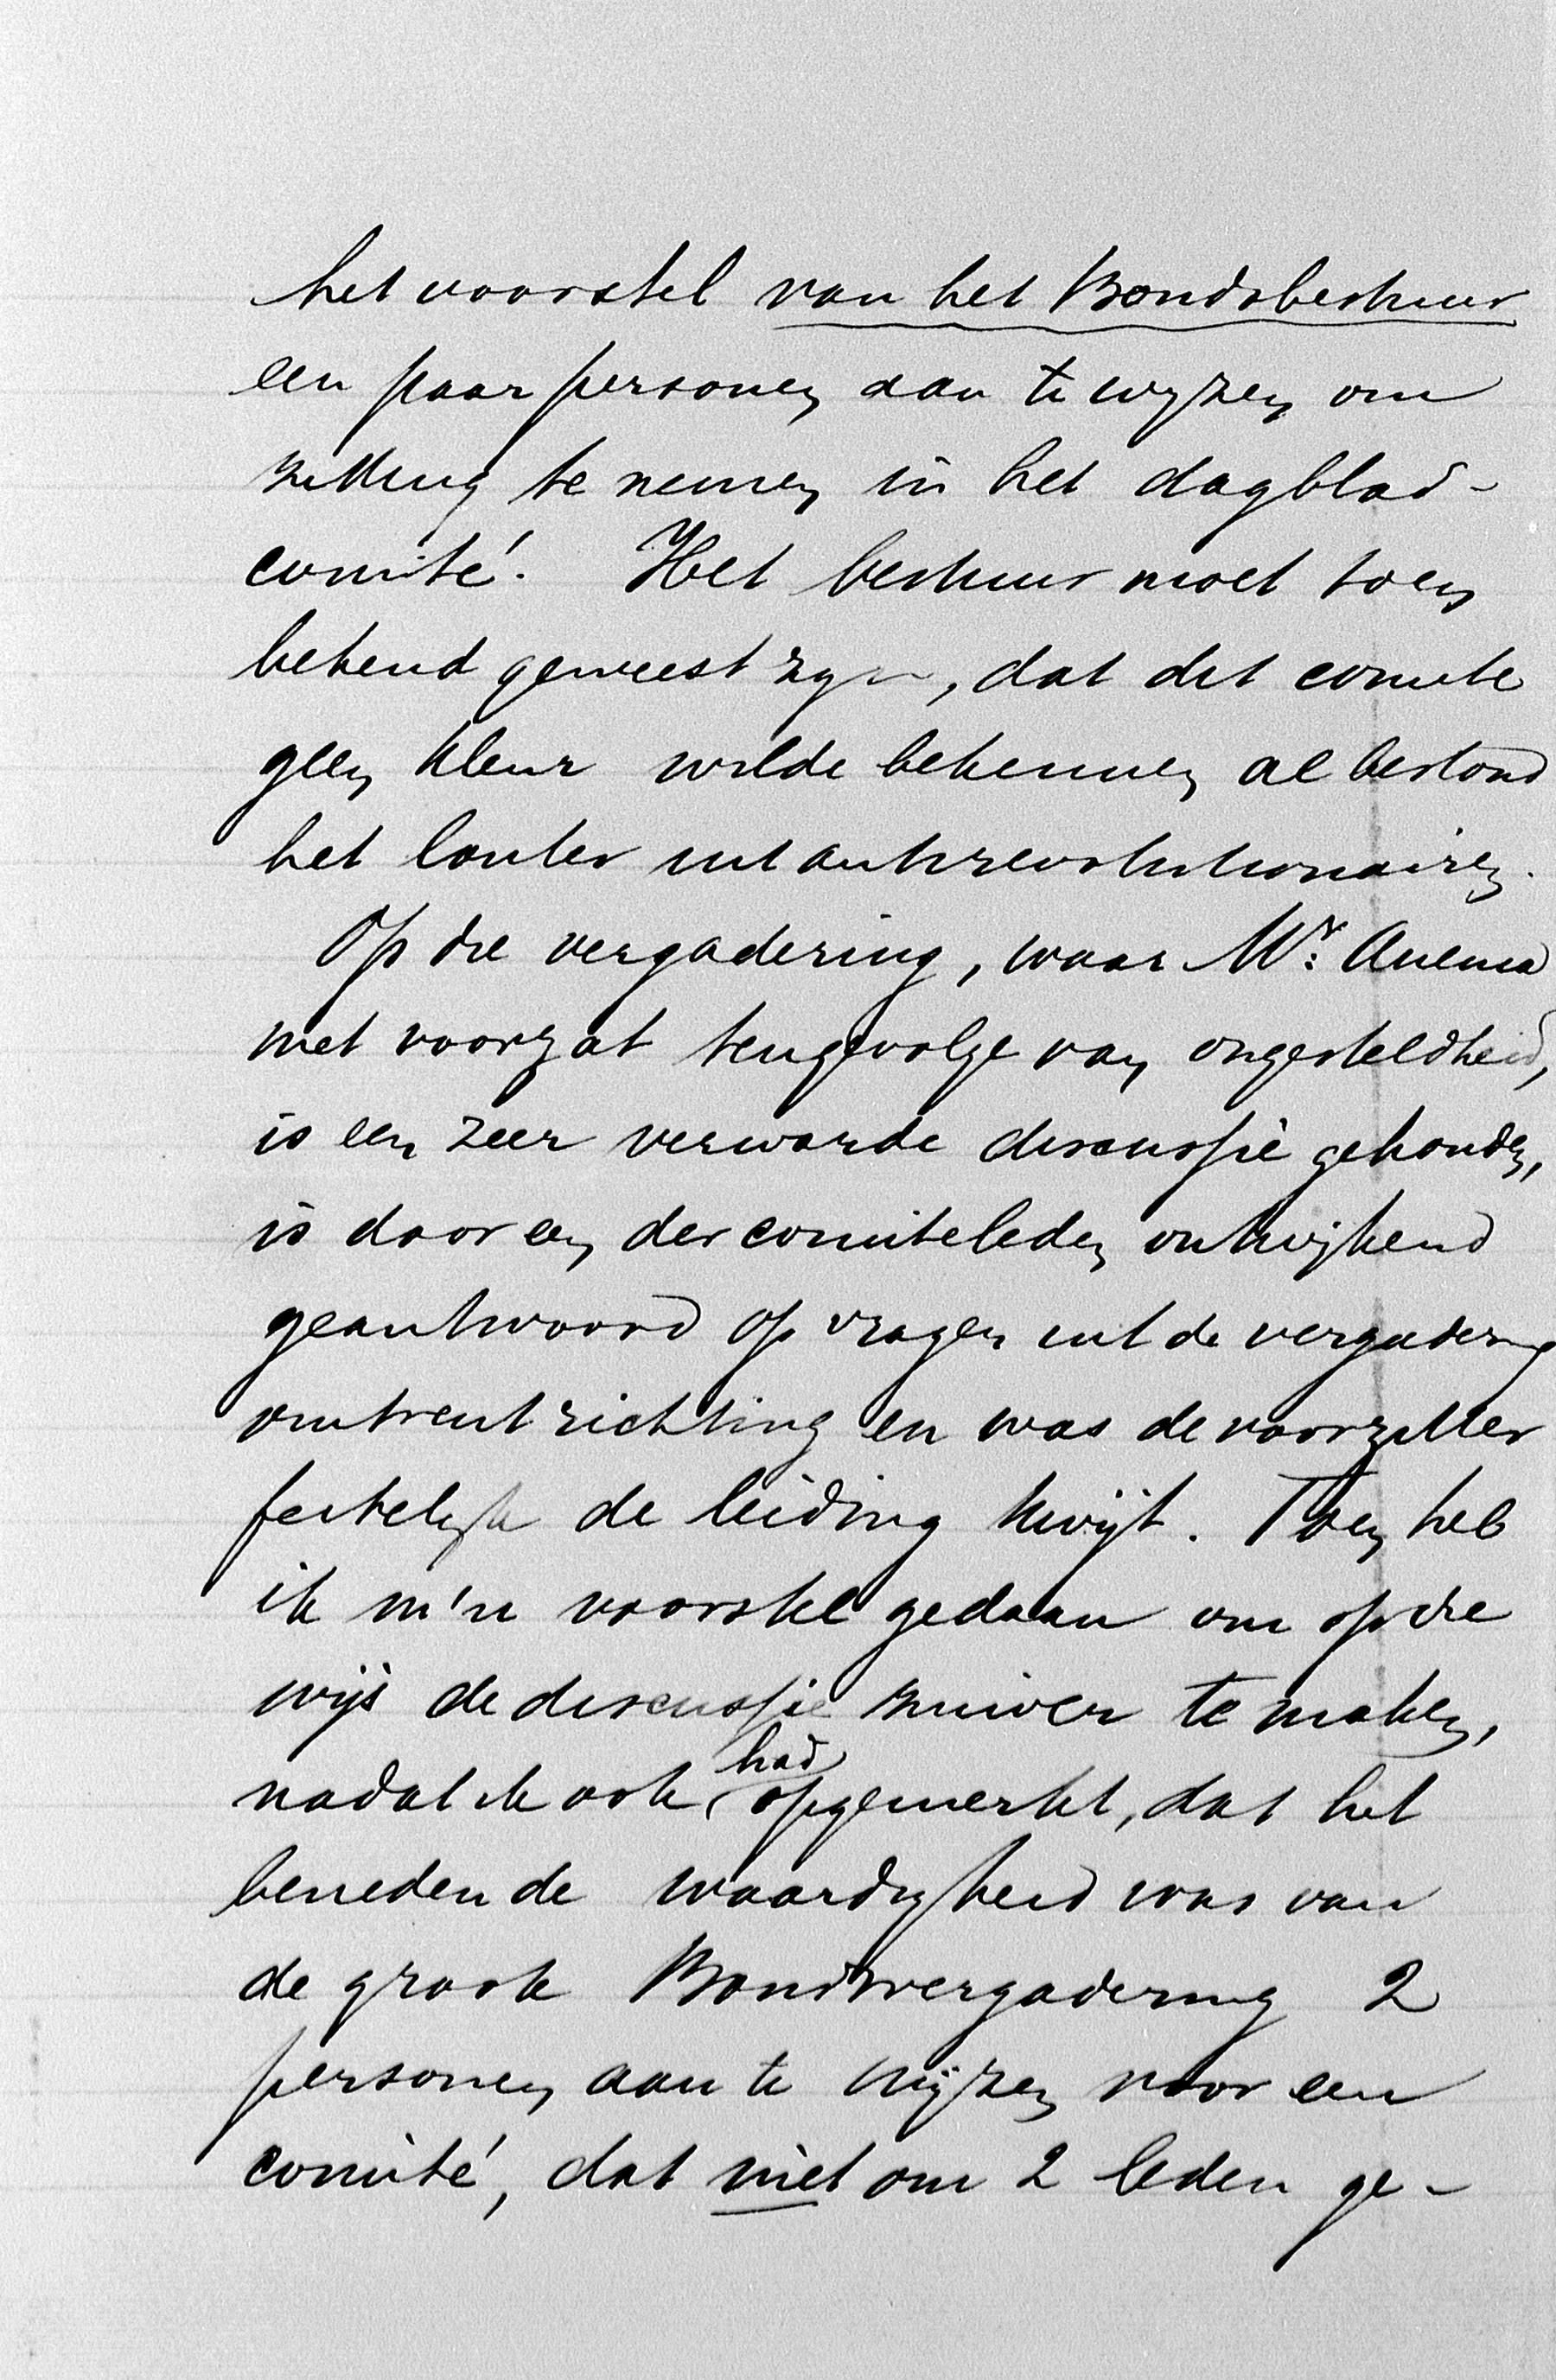 het voorstel van het Bondsbestuur
een paar personen aan te wyzen om
zitting te nemen in het dagblad-
comité. Het bestuur moet toen
bekend geweest zyn, dat dit comite
geen kleur wilde bekennen al bestond
het louter uit antirevolutionairen.
Op die vergadering, waar Mr. Anema
niet voorzat tengevolge van ongesteldheid,
is een zeer verwarde discussie gehouden,
is door een der comiteleden ontwijkend
geantwoord op vragen uit de vergadering
omtrent richting en was de voorzitter
feitelyk de leiding kwijt. Toen heb
ik m'n voorstel gedaan om op die
wijs de discussie zuiver te maken,
nadat ik ook had opgemerkt, dat het
beneden de waardigheid was van
de groote Bondsvergadering 2
personen aan te wijzen voor een
comité, dat niet om 2 leden ge-